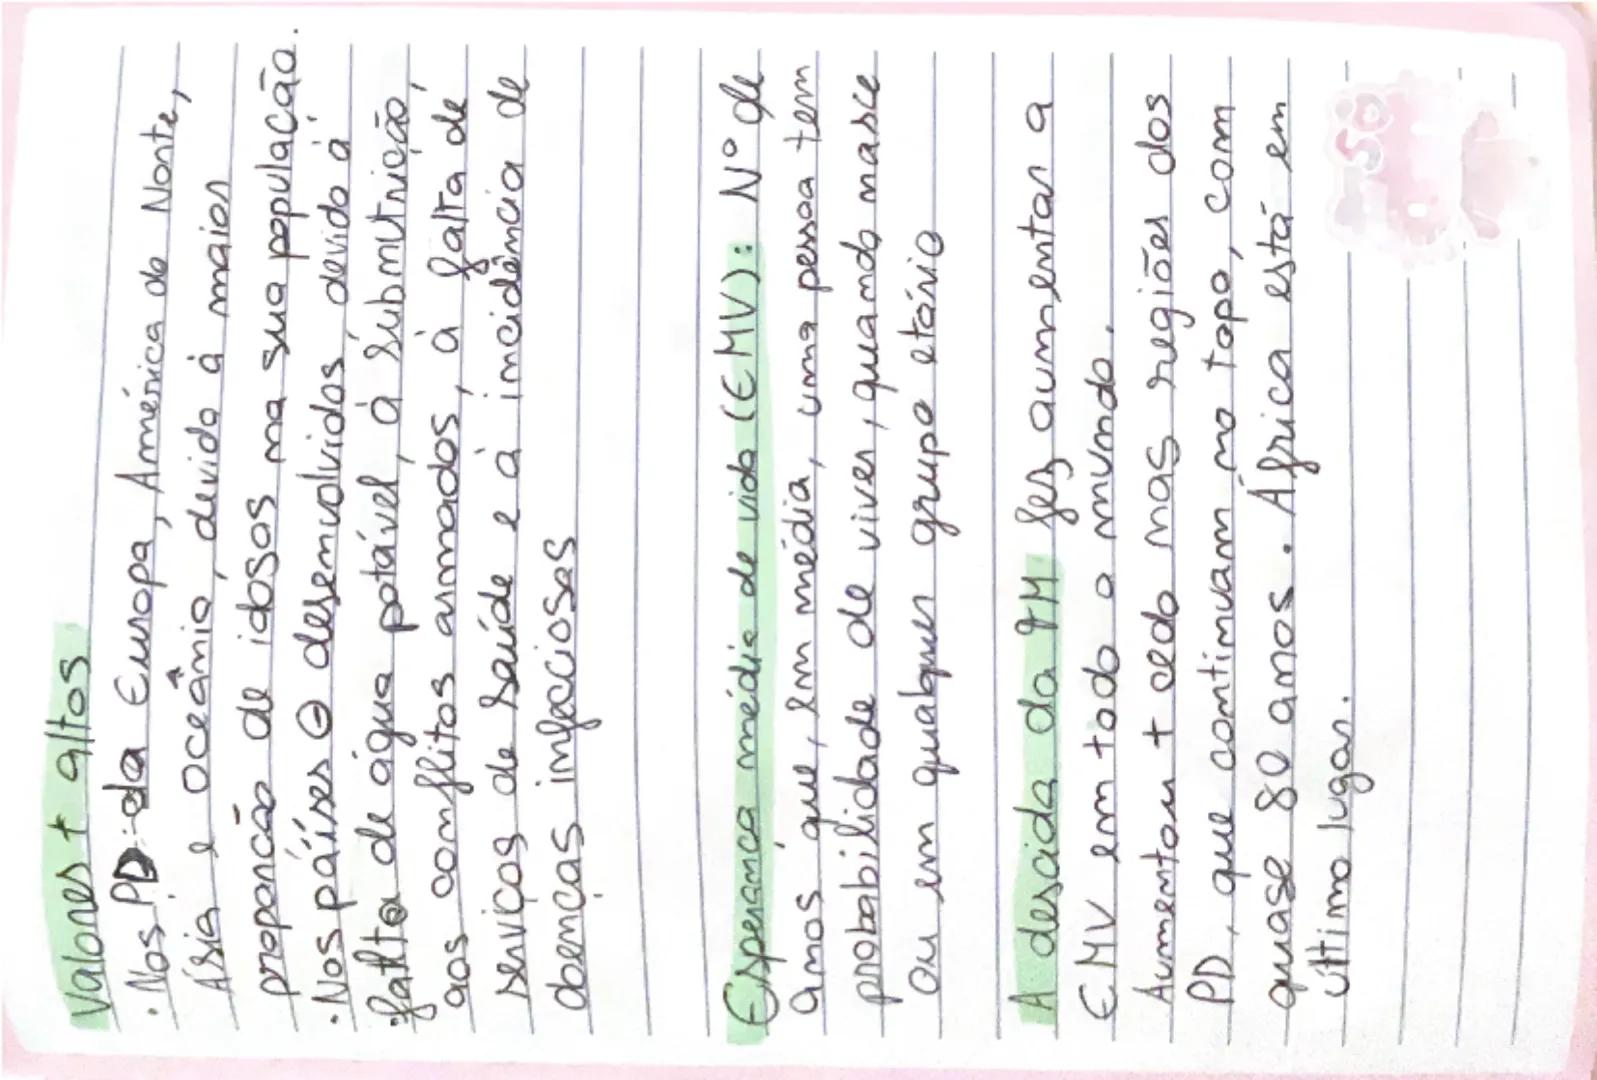 Valores + altos
· Nos PD da Europa, América do Norte,
Ásia e oceâmia, devido à maior
proporção de idosos na sua população.
· Nos países ⊖ desenvolvidos devido à
falta de água potável, à submutrição,
aos comflitos armados, à falta de
serviços de saúde e à imcidência de
doenças imfeciosas
Esperança média de vida (EMV): Nº de
amos que, em média, uma pessoa tem
probabilidade de viver, quando masce
ou em qualquer grupo etário
A descida da TM fez aumentar a
EMV em todo o mundo.
Aumentou + cedo mas regiões dos
PD, que comtimuam mo topo, com
quase 80 amos. África está em
último lugar.